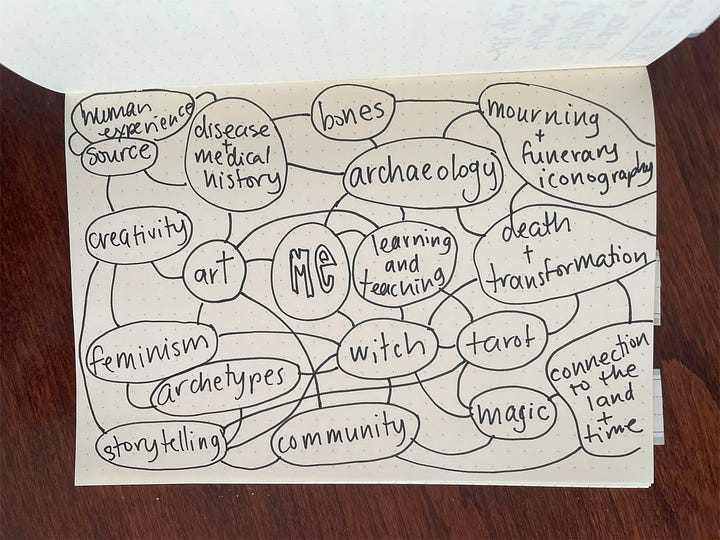 human
experience
source
disease
+
medical
history
bones
mourning
+
funerary
iconography
archaeology
creativity
art
Me
learning
and
teaching
death
+
transformation
feminism
archetypes
witch
tarot
connection
to the
land
+
time
storytelling
community
magic